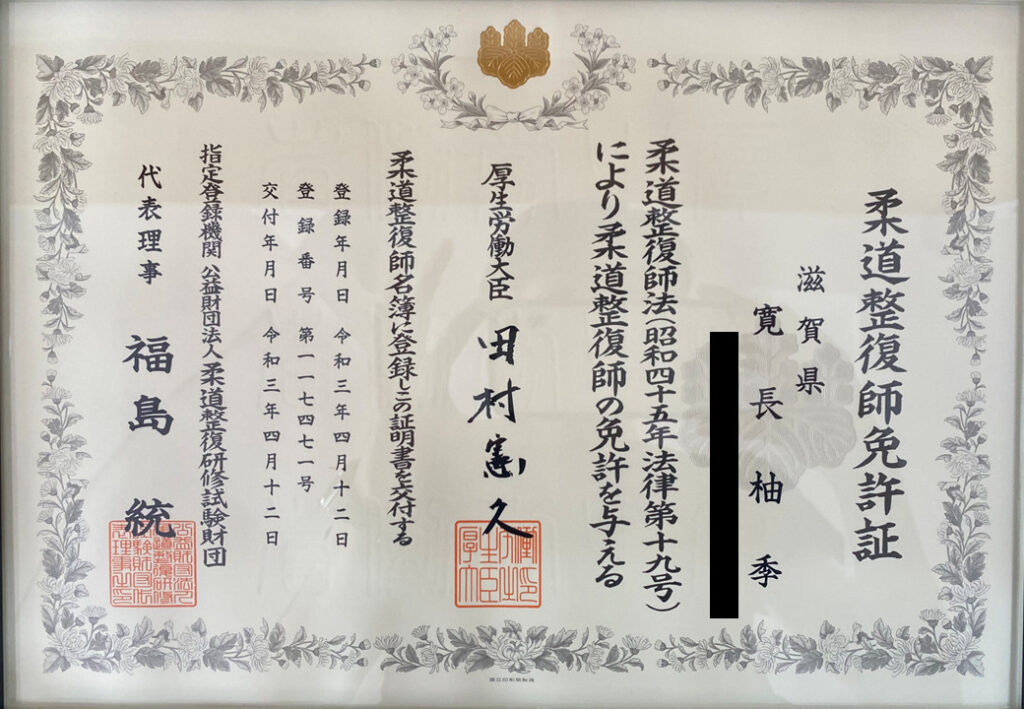 柔道整復師免許証
滋賀県
寛長柚季
柔道整復師法(昭和四十五年法律第十九号)
により柔道整復師の免許を与える
厚生労働大臣 田村憲久
柔道整復師名簿に登録しこの証明書を交付する
登録年月日 令和三年四月十二日
登録番号 第一一七四七一号
交付年月日 令和三年四月十二日
指定登録機関 公益財団法人柔道整復研修試験財団
代表理事 福島統